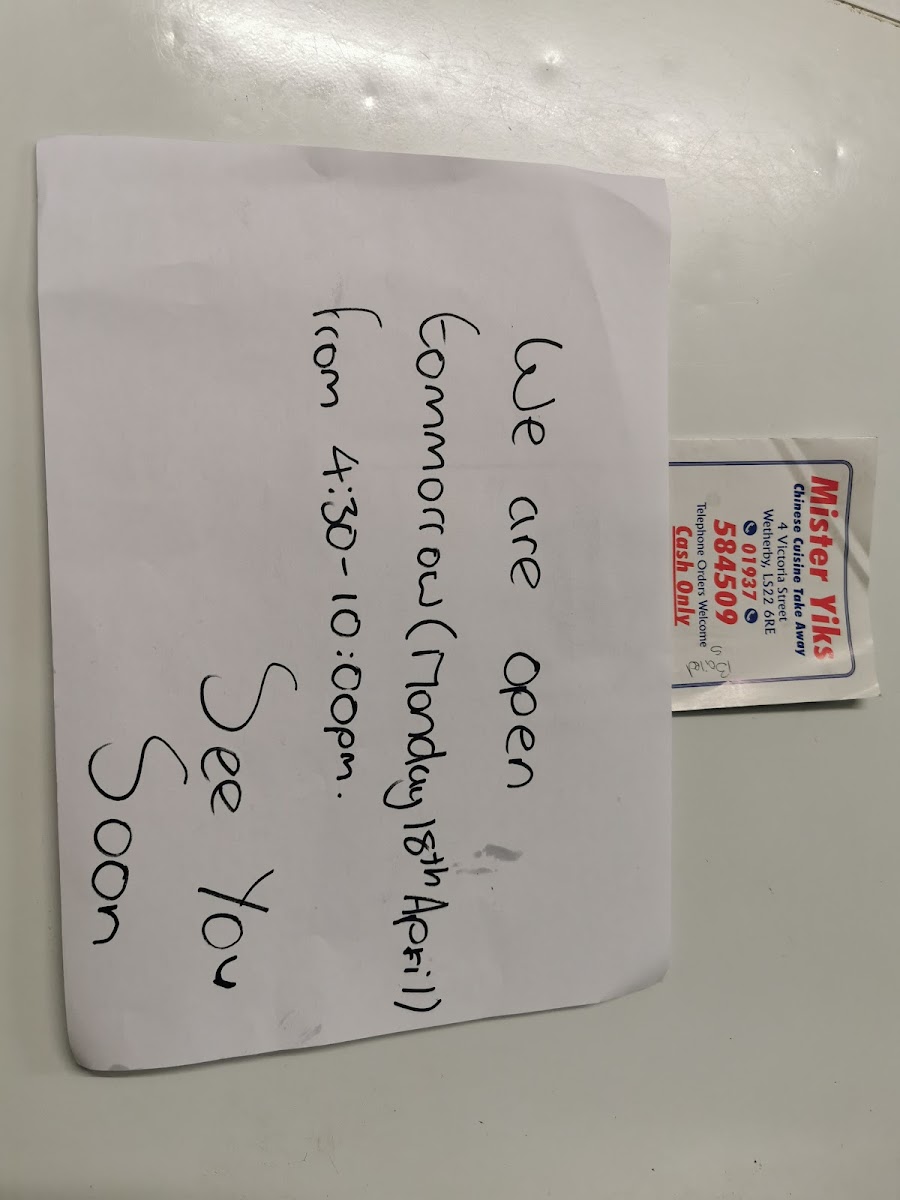 Mister Yiks
Chinese Cuisine Take Away
4 Victoria Street
Wetherby, LS22 6RE
01937
584509
Telephone Orders Welcome
Cash Only
We are open
tommorrow (Monday 18th April)
from 4:30-10:00pm.
See You
Soon